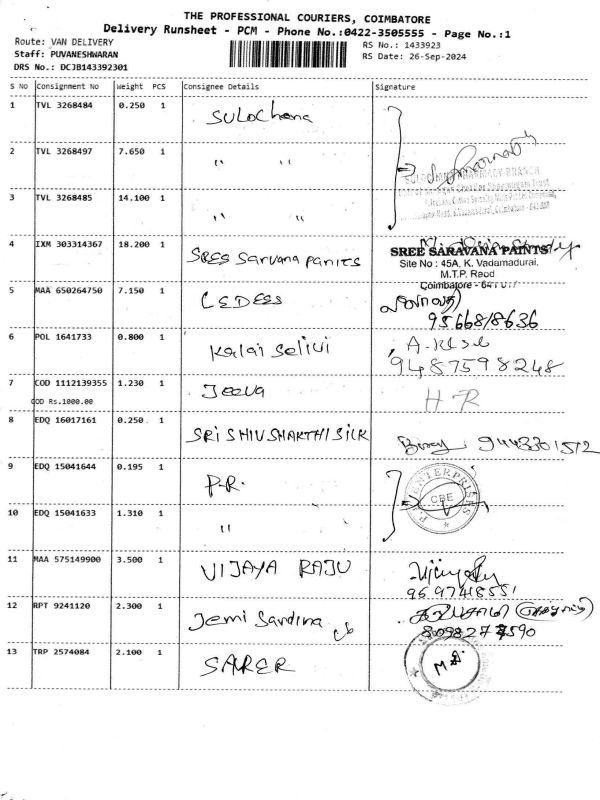 THE PROFESSIONAL COURIERS, COIMBATORE
Delivery Runsheet - PCM - Phone No.:0422-3505555 - Page No.:1
Route: VAN DELIVERY
RS No.: 1433923
Staff: PUVANESHWARAN
RS Date: 26-Sep-2024
DRS No.: DCJB143392301
S No Consignment No Weight PCS Consignee Details Signature
1 TVL 3268484 0.250 1 SULOchana
2 TVL 3268497 7.650 1 " "
3 TVL 3268485 14.100 1 " "
4 IXM 303314367 18.200 1 SREE Sarvana Panits
SREE SARAVANA PAINTS
Site No : 45A, K. Vadamadurai,
M.T.P. Raod
Coimbatore -
5 MAA 650264750 7.150 1 LEDEES
9566818636
6 POL 1641733 0.800 1 Kalai Selivi
9487598248
7 COD 1112139355 1.230 1 Jeeva H R
COD Rs.1000.00
8 EDQ 16017161 0.250 1 SRI SHIVSHAKTHI SILK
9443301572
9 EDQ 15041644 0.195 1 P.R.
ENTERPRISES
CBE
10 EDQ 15041633 1.310 1 "
11 MAA 575149900 3.500 1 VIJAYA RAJU
9697418551
12 RPT 9241120 2.300 1 Jemi Sandrina
13 TRP 2574084 2.100 1 SARER